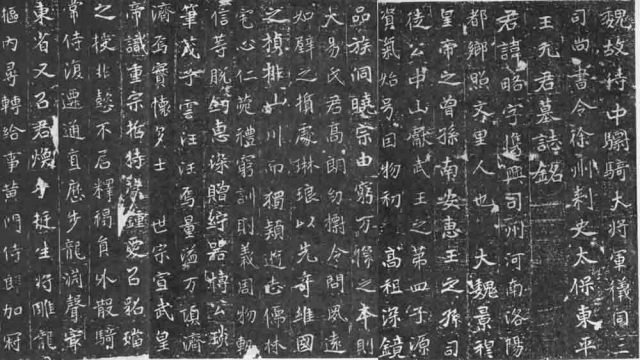 魏故侍中驃騎大將軍儀同三
司尚書令徐州刺史太保東平
王元君墓誌銘
君諱略字儁興司州河南洛陽
都鄉照文里人也 大魏景穆
皇帝之曾孫南安惠王之孫司
徒公中山獻武王之第四子源
資氣始号因物初 高祖深鏡
品族洞曉宗由窮万條之本則
大易氏君高朗幼摽令問夙遠
如璧之損處琳琅以先奇維國
之楨排山川而獨穎遊志儒林
宅心仁菀禮窮訓則義周物軌
信等脫劒惠深贈紵器博公琰
筆茂子雲汪汪焉量溢万頃濟
濟焉實懷多士 世宗宣武皇
帝識重宗哲特鍾愛
之授非懿不居釋褐員外散騎
常侍復遷通直應步龍淵聲震
東省又召君懷 挺生將雕龍
樞內尋轉給事黃門侍郎加冠